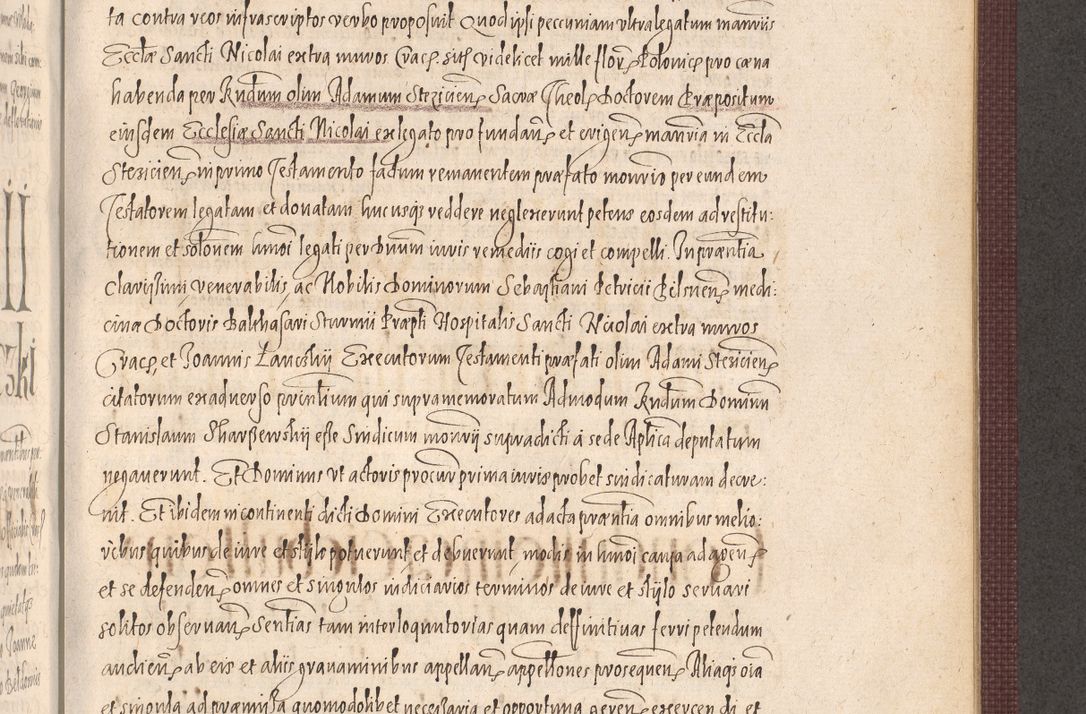 ta contra reos infrascriptos verbo proposuit Quod ipsi peccuniam vltra legatum manriis
Eccłæ Sancti Nicolai extra muros Crac: sitæ videlicet mille flor: Polonic: pro cæna
habenda per Rndum olim Adamum Steziciens: Sacræ Theol: Doctorem Præpositum
eiusdem Ecclesiæ Sancti Nicolai ex legato pro fundan: et erigen: manria in Eccla
Stezicien: in primo Testamento factum remanentem præfato monrio per eundem
Testatorem legatam et donatam hucusq reddere neglexerunt petens eosdem ad restitu:
tionem et solonem hmoi legati per Dnum iuris remediis cogi et compelli. In præntia
Clarissimi, venerabilis, ac Nobilis Dominorum Sebastiani Petricii Pilsnen: medi:
cinæ Doctoris Balthasari Sturmii Præpti Hospitalis Sancti Nicolai extra muros
Crac: et Joannis Łanczkij Executorum Testamenti præfati olim Adami Stezicien:
citatorum ex aduerso printium qui supramemoratum Admodum Rndum Dominum
Stanislaum Skarszewskij esse Sindicum monrij supradicti à sede Aplica deputatum
negauerunt. Et Dominus vt actoris procur prima iuris probet sindicaturam decre:
uit. Et ibidem in continenti dicti Domini Executores ad acta præntia omnibus melio:
ribus quibus de iure et stylo potuerunt et debuerunt, modis in hmoi causa ad agen:
et se defenden: omnes et singulos iudiciarios terminos de iure et stylo seruari
solitos obseruan: Sentias tam interloquutorias quam deffinitiuas ferri petendum
audien: ab eis et aliis grauaminibus appellan: appellones prosequen: Aliaq oia
et singula ad præmissa quomodolibet necessaria et opportuna geren: exercendi et